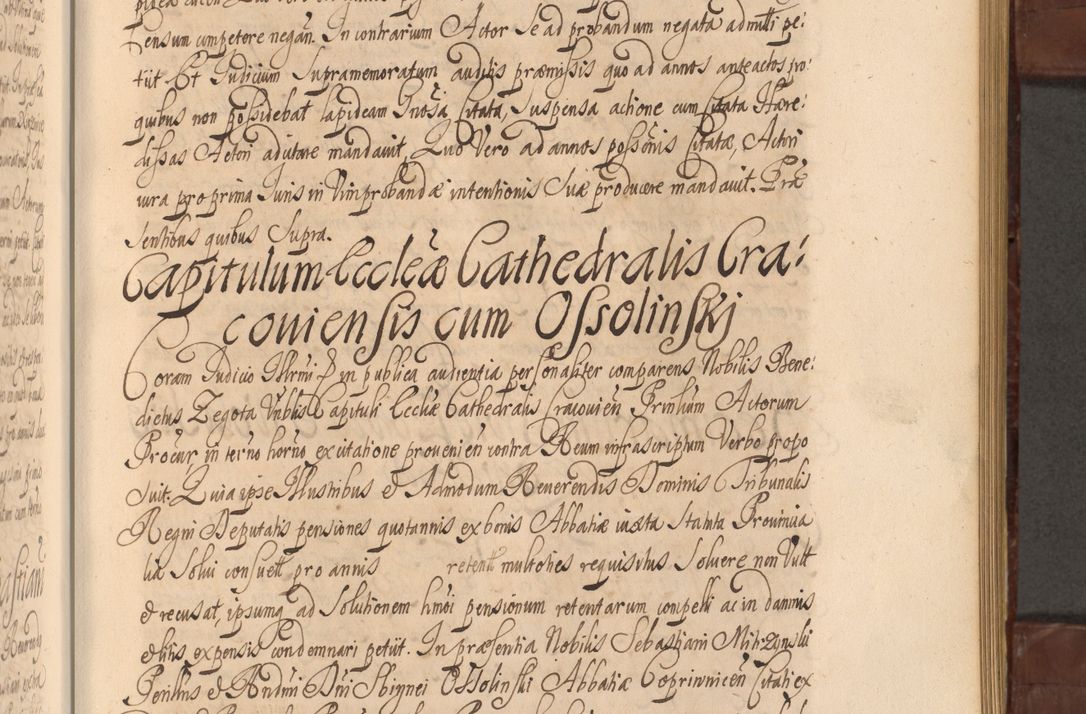 pensum competere negan. In contrarium Actor se ad probandum negata admitti pe:
tiit Et Iudicium Supramemoratum auditis præmissis quo ad annos anteactos pro:
quibus non possidebat lapideam Inossa Citata, Suspensa actione cum Citata Hære:
dissas Actori adcitare mandavit, Quo Vero ad annos possonis Citatæ, Actori
iura pro prima Iuris in Vim probandæ intentionis Suæ producere mandavit. Præ
sentibus quibus Supra.
Capitulum Eccleæ Cathedralis Cra:
coviensis cum Ossolinskj
Coram Iudicio Illrmi P in publica audientia personaliter comparens Nobilis Bene:
dictus Zegota Vnblis Capituli Eccliæ Cathedralis Cracovien Prinlium Actorum
Procur, in terno horno ex citatione provenien contra Reum infrascriptum Verbo propo
suit. Quia ipse Illustribus et Admodum Reverendis Dominis Tribunalis
Regni Deputatis pensiones quotannis ex bonis Abbatiæ iuxta Statuta Provincia
lia Solvi consuett pro annis retentt multoties requisitus Solvere non Vult
et recusat, ipsumq ad Solutionem hmoi pensionum retentarum compelli ac in damnis
et litis expensis condemnari petiit. In præsentia Nobilis Sebastiani
Penlius et Rndmi Dni Sbignei Ossolinski Abbatiæ Coprivnicen Citati ex